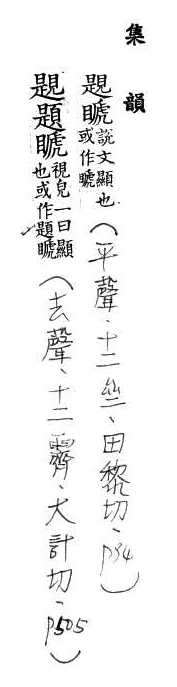 集韻
䚣䁝說文顯也或作䁝（平聲、十二、田黎切、P94）
䚣題䁝視皃一曰顯也或作題䁝（去聲、十二霽、大計切、P505）